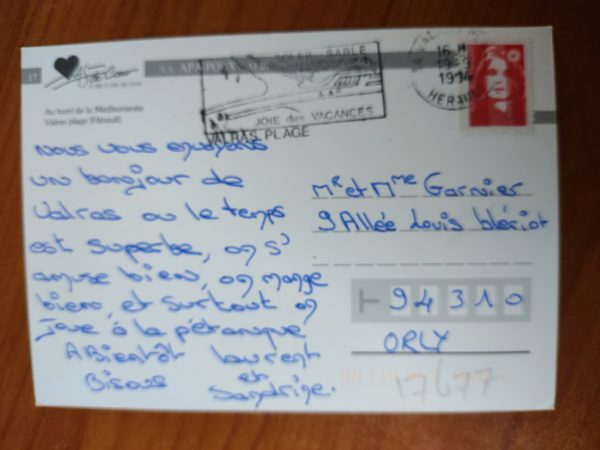 17
Au bord de la Méditerranée
Valras plage (Hérault)
SOLEIL SABLE
JOIE des VACANCES
VALRAS PLAGE
HERAULT
Nous vous envoyons
un bonjour de
Valras ou le temps
est superbe, on s'
amuse bien, on mange
bien, et surtout on
joue à la pétanque
A Bientôt Laurent
et
Bisous Sandrine.
Mr et Mme Garnier
9 Allée Louis blériot
94310
ORLY
17677